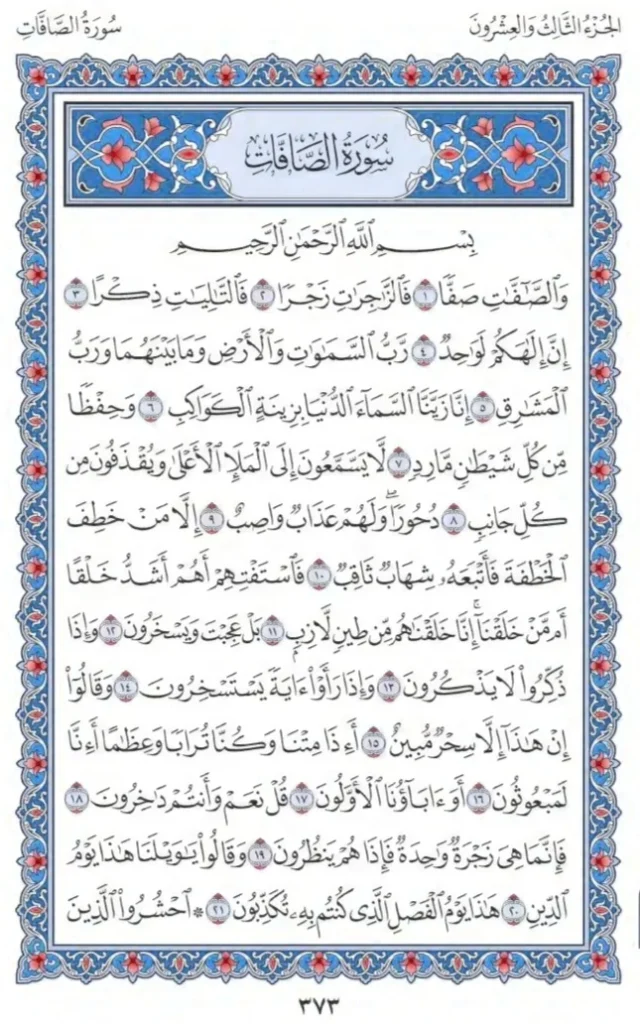 الجُزْءُ الثَّالِثُ وَالعِشْرُونَ
سُورَةُ الصَّافَّاتِ
سُورَةُ الصَّافَّاتِ
بِسْمِ اللَّهِ الرَّحْمَٰنِ الرَّحِيمِ
وَالصَّٰٓفَّٰتِ صَفًّا ١ فَالزَّٰجِرَٰتِ زَجْرًا ٢ فَالتَّٰلِيَٰتِ ذِكْرًا ٣
إِنَّ إِلَٰهَكُمْ لَوَٰحِدٌ ٤ رَّبُّ السَّمَٰوَٰتِ وَالْأَرْضِ وَمَا بَيْنَهُمَا وَرَبُّ
الْمَشَٰرِقِ ٥ إِنَّا زَيَّنَّا السَّمَآءَ الدُّنْيَا بِزِينَةٍ الْكَوَاكِبِ ٦ وَحِفْظًا
مِّن كُلِّ شَيْطَٰنٍ مَّارِدٍ ٧ لَّا يَسَّمَّعُونَ إِلَى الْمَلَإِ الْأَعْلَىٰ وَيُقْذَفُونَ مِن
كُلِّ جَانِبٍ ٨ دُحُورًا ۖ وَلَهُمْ عَذَابٌ وَاصِبٌ ٩ إِلَّا مَنْ خَطِفَ
الْخَطْفَةَ فَأَتْبَعَهُۥ شِهَابٌ ثَاقِبٌ ١٠ فَاسْتَفْتِهِمْ أَهُمْ أَشَدُّ خَلْقًا
أَم مَّنْ خَلَقْنَآ ۚ إِنَّا خَلَقْنَٰهُم مِّن طِينٍ لَّازِبٍۭ ١١ بَلْ عَجِبْتَ وَيَسْخَرُونَ ١٢ وَإِذَا
ذُكِّرُوا۟ لَا يَذْكُرُونَ ١٣ وَإِذَا رَأَوْا۟ ءَايَةً يَسْتَسْخِرُونَ ١٤ وَقَالُوٓا۟
إِنْ هَٰذَآ إِلَّا سِحْرٌ مُّبِينٌ ١٥ أَءِذَا مِتْنَا وَكُنَّا تُرَابًا وَعِظَٰمًا أَءِنَّا
لَمَبْعُوثُونَ ١٦ أَوَءَابَآؤُنَا الْأَوَّلُونَ ١٧ قُلْ نَعَمْ وَأَنتُمْ دَٰخِرُونَ ١٨
فَإِنَّمَا هِىَ زَجْرَةٌ وَٰحِدَةٌ فَإِذَا هُمْ يَنظُرُونَ ١٩ وَقَالُوا۟ يَٰوَيْلَنَا هَٰذَا يَوْمُ
الدِّينِ ٢٠ هَٰذَا يَوْمُ الْفَصْلِ الَّذِى كُنتُم بِهِۦ تُكَذِّبُونَ ٢١ ۞ احْشُرُوا۟ الَّذِينَ
٣٧٣